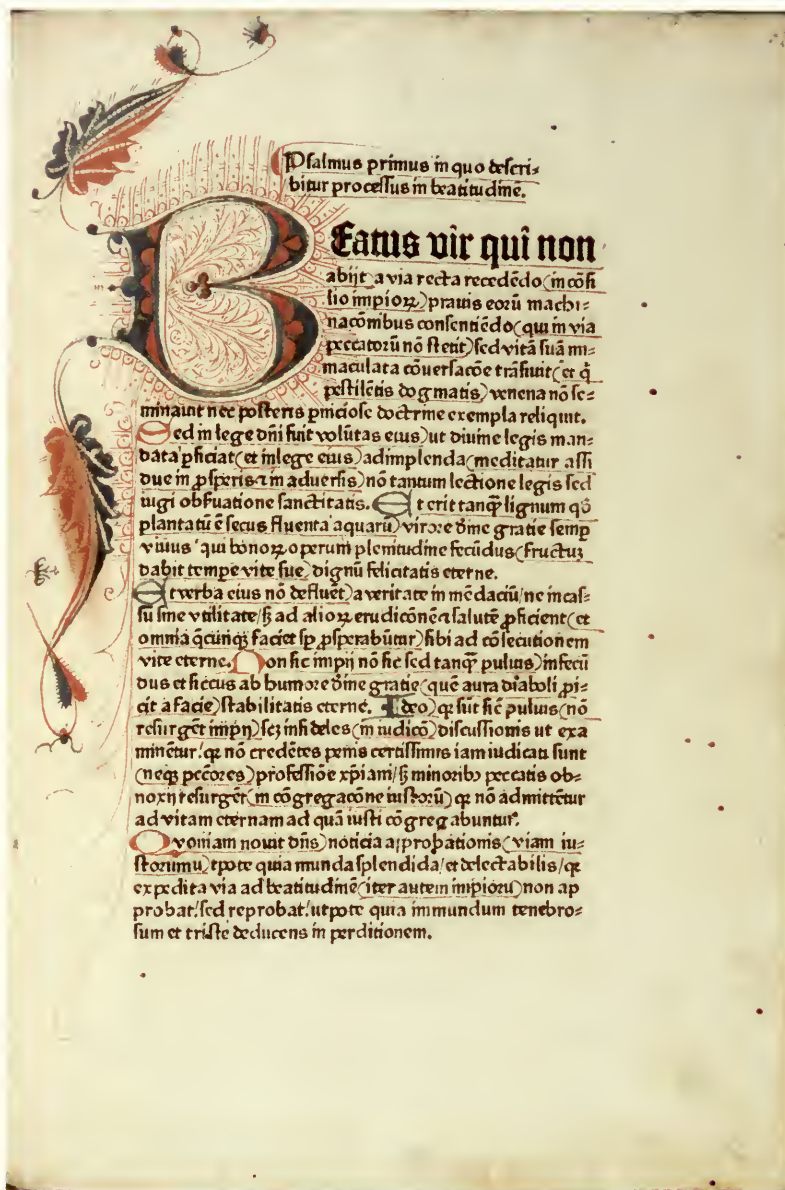 Psalmus primus in quo descri⸗
bitur processus in beatitudinē.
Beatus vir qui non
abijt a via recta recedēdo (in cōsi
lio impioꝝ) prauis eorū machi⸗
nacōnibus consentiēdo (qui in via
peccatorū nō stetit) sed vitā suā in⸗
maculata cōuersacōe trāsiuit (et q̄
pestilētis dogmatis) venena nō se⸗
minauit nec posteris ꝑniciose doctrine exempla reliquit.
Sed in lege dn̄i fuit volūtas eius) ut diuine legis man⸗
data ꝑficiat (et in lege eius) adimplenda (meditatur assi
due in ꝓsperis ⁊ in aduersis) nō tantum lectione legis sed
iugi obsuatione sanctitatis. Et erit tanq̄ lignum qd̄
plantatū ē secus fluenta aquarū) virore diuine gratie semp̄
viuus / qui bonoꝝ operum plenitudine fecūdus (fructuꝫ
dabit tempe vite sue) dignū felicitatis eterne.
Et verba eius nō defluēt) a veritate in mēdaciū / ne in cas⸗
su sine vtilitate / sꝫ ad alioꝝ erudicōnē ⁊ salutē ꝓficient (et
omnia q̄cunqꝫ faciet sp̄ ꝓsperabūtur) sibi ad cōsecutionem
vite eterne. Non sic impij nō sic sed tanq̄ puluis) infecū
dus et siccus ab humore diuine gratie (quē aura diaboli ꝓi⸗
cit a facie) stabilitatis eterne. Ideo) qꝛ sūt sic puluis (nō
resurgēt impij) scꝫ infideles (in iudicō) discussionis ut exa
minētur / qꝛ nō credētes penis certissimis iam iudicati sunt
(neqꝫ pctōres) professiōe xp̄iani / sꝫ minoribꝰ peccatis ob⸗
noxij resurgēt (in cōgregacōne iustorū) qꝛ nō admittētur
ad vitam eternam ad quā iusti cōgregabuntur.
Quoniam nouit dn̄s) noticia approbationis (viam iu⸗
storum u) tpote quia munda splendida / et delectabilis / qꝛ
expedita via ad beatitudinē (iter autem impiorū) non ap
probat / sed reprobat / utpote quia immundum tenebro⸗
sum et triste deducens in perditionem.